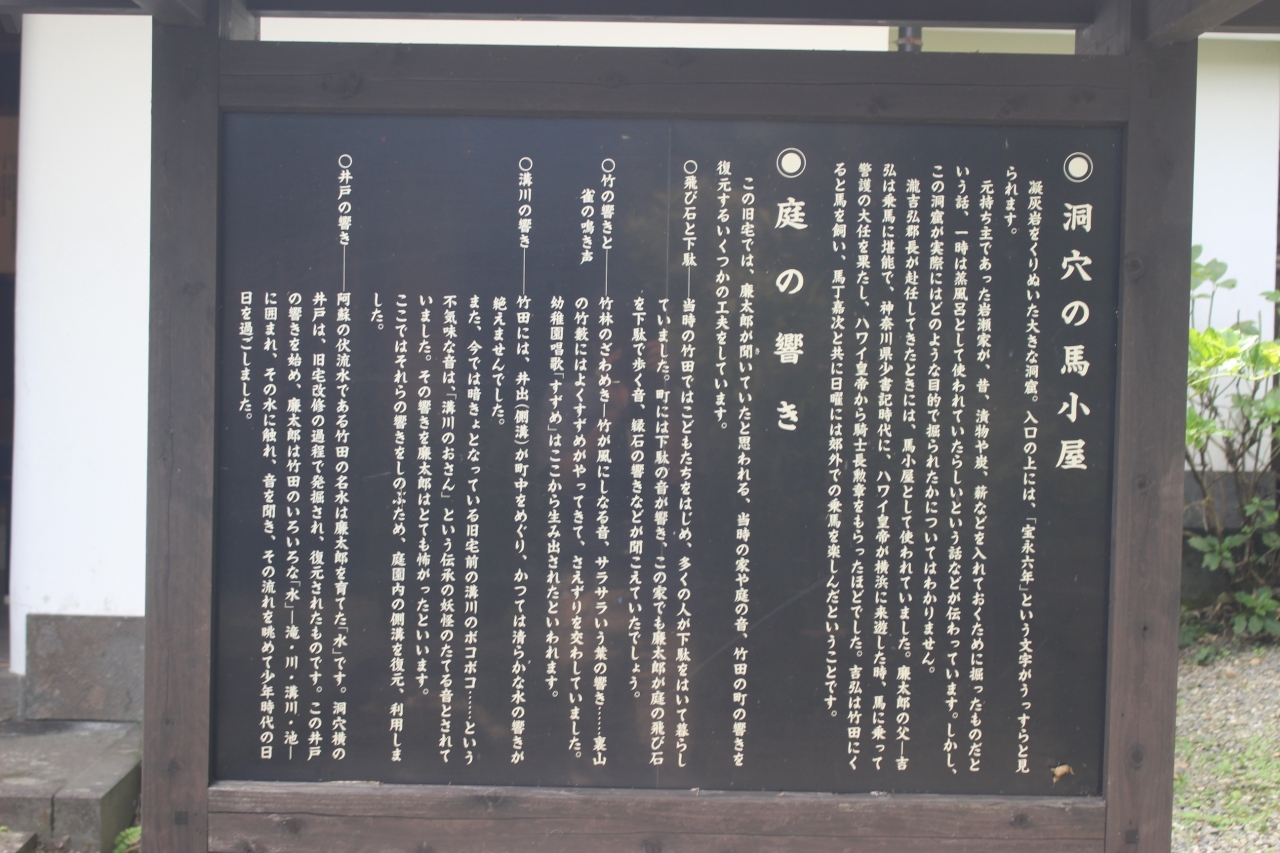 ◉洞穴の馬小屋
凝灰岩をくりぬいた大きな洞窟。入口の上には、「宝永六年」という文字がうっすらと見
られます。
元持ち主であった岩瀬家が、昔、漬物や炭、薪などを入れておくために掘ったものだと
いう話、一時は蒸風呂として使われていたらしいという話などが伝わっています。しかし、
この洞窟が実際にはどのような目的で掘られたかについてはわかりません。
瀧吉弘郡長が赴任してきたときには、馬小屋として使われていました。廉太郎の父―吉
弘は乗馬に堪能で、神奈川県少書記時代に、ハワイ皇帝が横浜に来遊した時、馬に乗って
警護の大任を果たし、ハワイ皇帝から騎士長勲章をもらったほどでした。吉弘は竹田にく
ると馬を飼い、馬丁嘉次と共に日曜には郊外での乗馬を楽しんだということです。
◉庭の響き
この旧宅では、廉太郎が聞いていたと思われる、当時の家や庭の音、竹田の町の響きを
復元するいくつかの工夫をしています。
○飛び石と下駄――当時の竹田ではこどもたちをはじめ、多くの人が下駄をはいて暮らし
ていました。町には下駄の音が響き、この家でも廉太郎が庭の飛び石
を下駄で歩く音、縁石の響きなどが聞こえていたでしょう。
○竹の響きと――竹林のざわめき―竹が風にしなる音、サラサラいう葉の響き……裏山
雀の鳴き声
の竹藪にはよくすずめがやってきて、さえずりを交わしていました。
幼稚園唱歌「すずめ」はここから生み出されたといわれます。
○溝川の響き――竹田には、井出(側溝)が町中をめぐり、かつては清らかな水の響きが
絶えませんでした。
また、今では暗きょとなっている旧宅前の溝川のボコボコ……という
不気味な音は、「溝川のおさん」という伝承の妖怪のたてる音とされて
いました。その響きを廉太郎はとても怖がったといいます。
ここではそれらの響きをしのぶため、庭園内の側溝を復元、利用しま
した。
○井戸の響き――阿蘇の伏流水である竹田の名水は廉太郎を育てた「水」です。洞穴横の
井戸は、旧宅改修の過程で発掘され、復元されたものです。この井戸
の響きを始め、廉太郎は竹田のいろいろな「水」―滝・川・溝川・池―
に囲まれ、その水に触れ、音を聞き、その流れを眺めて少年時代の日
日を過ごしました。